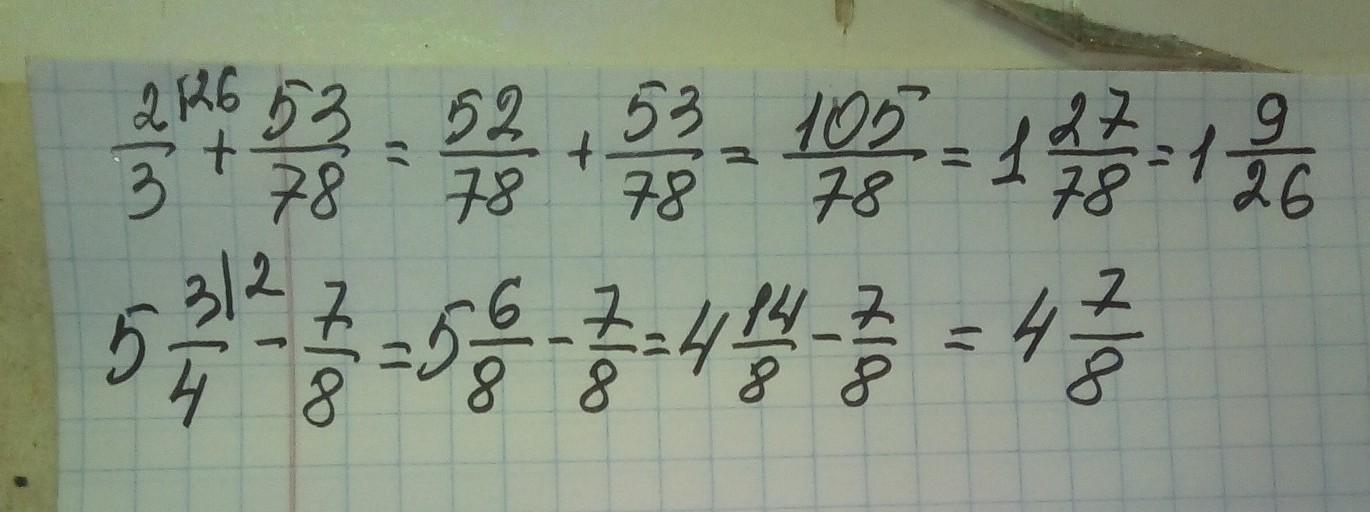 2/3 |26 + 53/78 = 52/78 + 53/78 = 105/78 = 1 27/78 = 1 9/26
5 3/4 |2 - 7/8 = 5 6/8 - 7/8 = 4 14/8 - 7/8 = 4 7/8